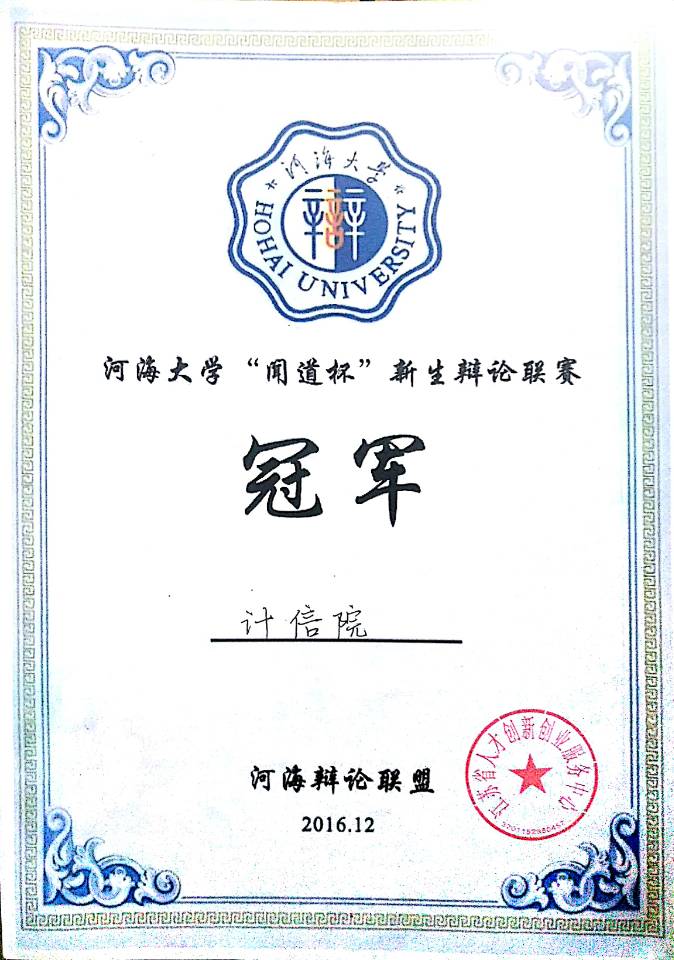 河海大学
辩
HOHAI UNIVERSITY
河海大学“闻道杯”新生辩论联赛
冠军
计信院
河海辩论联盟
2016.12
江苏省人才创新创业服务中心